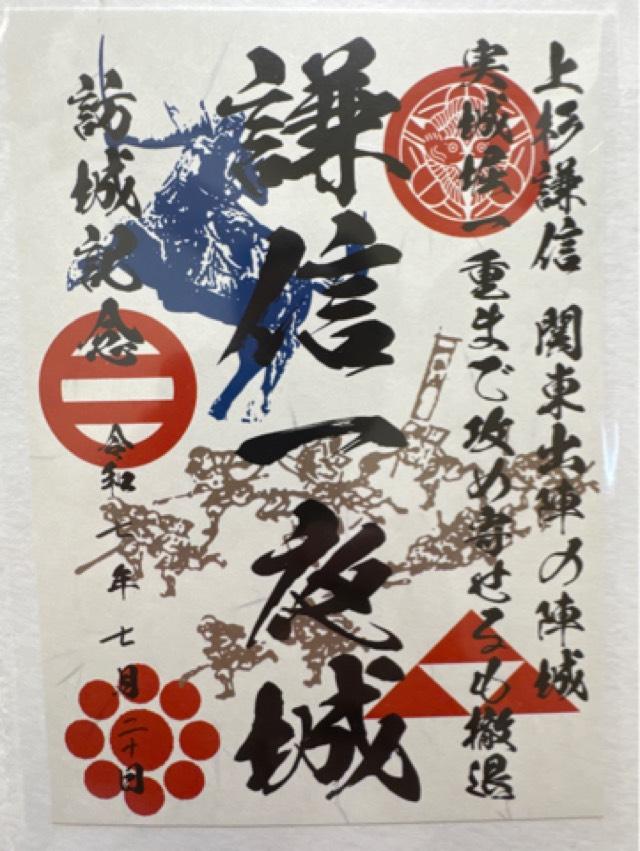 上杉謙信 関東出陣の陣城
実城堀一重まで攻め寄せるも撤退
謙信一夜城
訪城記念 令和七年七月二十日